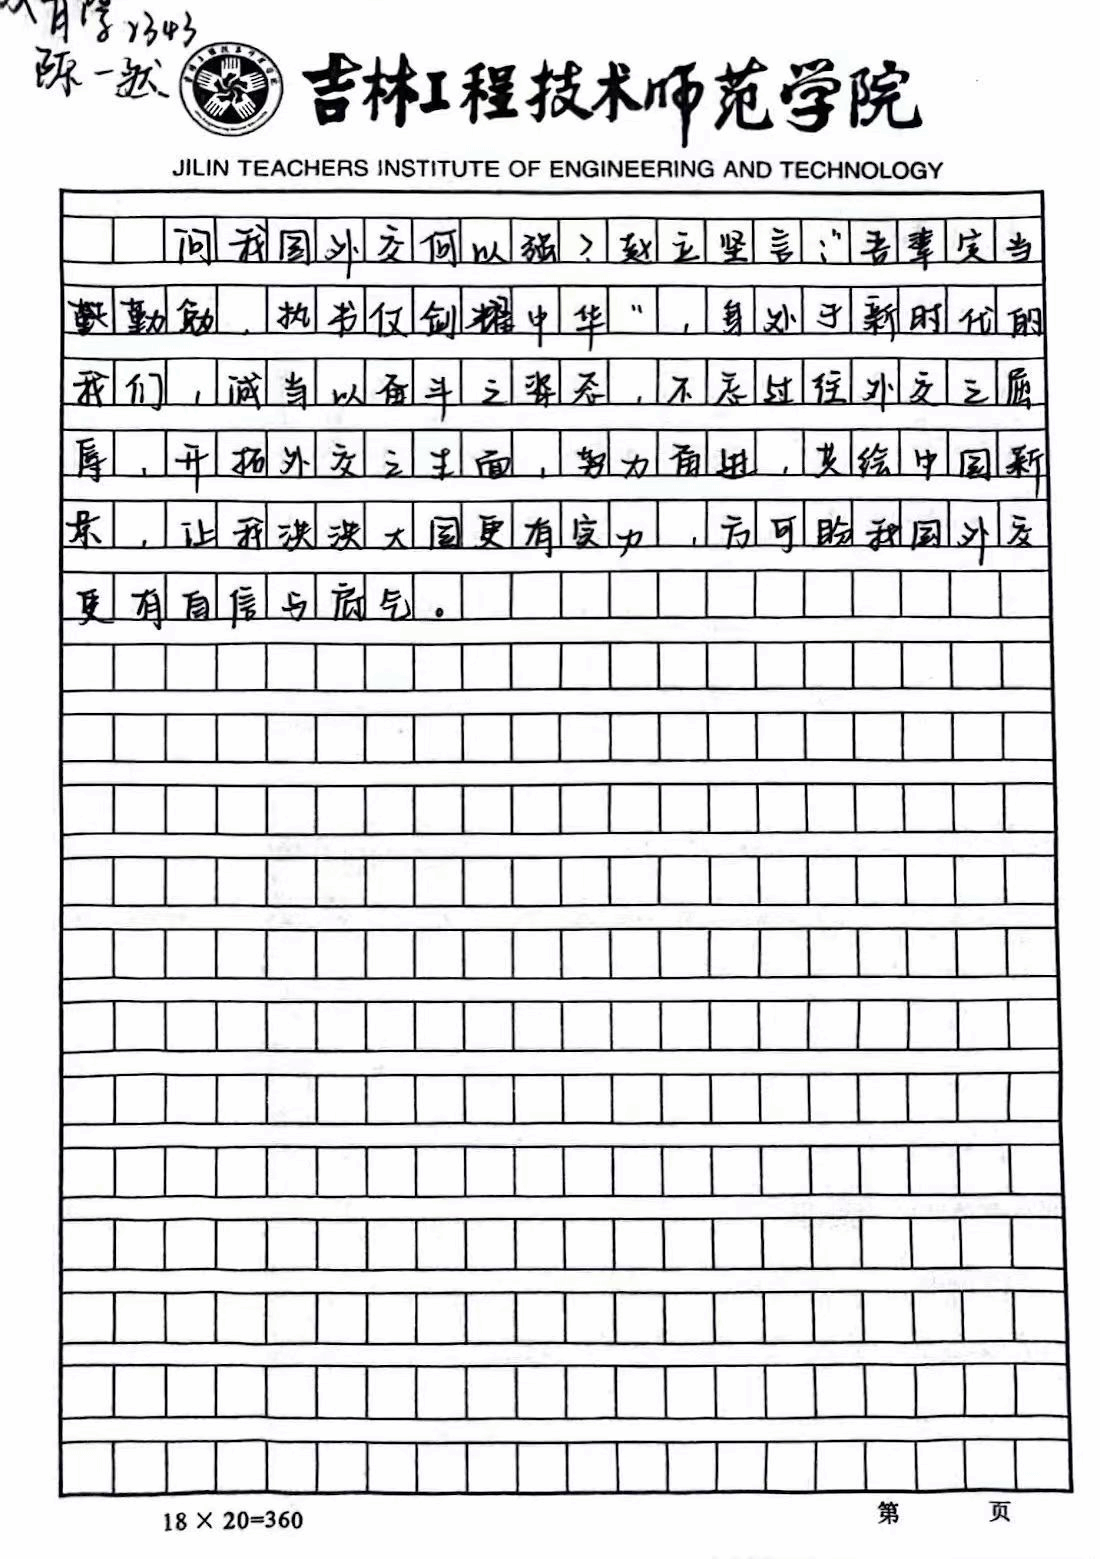 教育学2343
陈一然
吉林工程技术师范学院
JILIN TEACHERS INSTITUTE OF ENGINEERING AND TECHNOLOGY
问我国外交何以强?赵立坚言:“吾辈定当
勤勉,执书仗剑耀中华”,身处于新时代的
我们,诚当以奋斗之姿态,不忘过往外交之屈
辱,开拓外交之生面,努力奋进,共绘中国新
景,让我泱泱大国更有实力,方可盼我国外交
更有自信与底气。
18 × 20=360
第 页